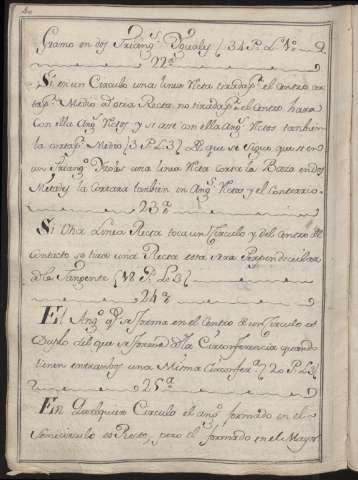 gramo en dos Triang.s Yguales (34 P. L. 1.º)
22.ª
Si en un Circulo una linea Recta tirada p.r el centro cor
ta p.r Medio á otra Recta no tirada p.r el Centro hara
con ella Ang.s Rectos y si ase con ella Ang.s Rectos tambien
la cortap.r Medio (3 P. L. 3) De que se sigue que si en
un Triang.º una linea Recta corta la Baza en dos
Metades la cortara tambien en Ang.s Rectos y el Contrario
23.ª
Si Una Linea Recta toca un Circulo y del Centro al
Contacto se tira una Recta esta sera Perpendicular
a la Tangente (18 P. L. 3)
24.ª
El Ang.º q.e se forma en el Centro de un Circulo es
Duplo del que se forma en la Circonferencia quando
tienen entrambos una Misma Circonfer.a (20 P. L. 3)
25.ª
En qualquier Circulo el ang.º formado en el
Semicirculo es Recto, pero el formado en el Mayor